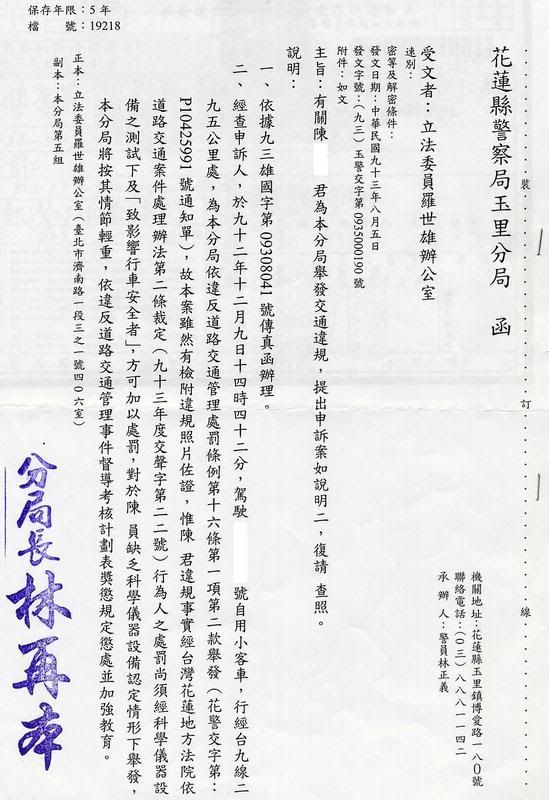 保存年限：5 年
檔　　號：19218
花蓮縣警察局玉里分局　函
機關地址：花蓮縣玉里鎮博愛路一八0號
聯絡電話：(０三)八八八一一四二
承 辦 人：警員林正義
受文者：立法委員羅世雄辦公室
速別：
密等及解密條件：
發文日期：中華民國九十三年八月五日
發文字號：(九三)玉警交字第 0935000190 號
附件：如文
主旨：有關陳　君為本分局舉發交通違規，提出申訴案如說明二，復請 查照。
說明：
一、依據九三雄國字第 09308041 號傳真函辦理。
二、經查申訴人，於九十二年十二月九日十四時四十二分，駕駛　　號自用小客車，行經台九線二
九五公里處，為本分局依違反道路交通管理處罰條例第十六條第一項第二款舉發（花警交字第：
P10425991 號通知單），故本案雖然有檢附違規照片佐證，惟陳 君違規事實經台灣花蓮地方法院依
道路交通案件處理辦法第二條裁定（九十三年度交聲字第二二號）行為人之處罰尚須經科學儀器設
備之測試下及「致影響行車安全者」，方可加以處罰，對於陳 員缺乏科學儀器設備認定情形下舉發，
本分局將按其情節輕重，依違反道路交通管理事件督導考核計劃表獎懲規定懲處並加強教育。
正本：立法委員羅世雄辦公室（臺北市濟南路一段三之一號四０六室）
副本：本分局第五組
分局長林再本
裝
訂
線